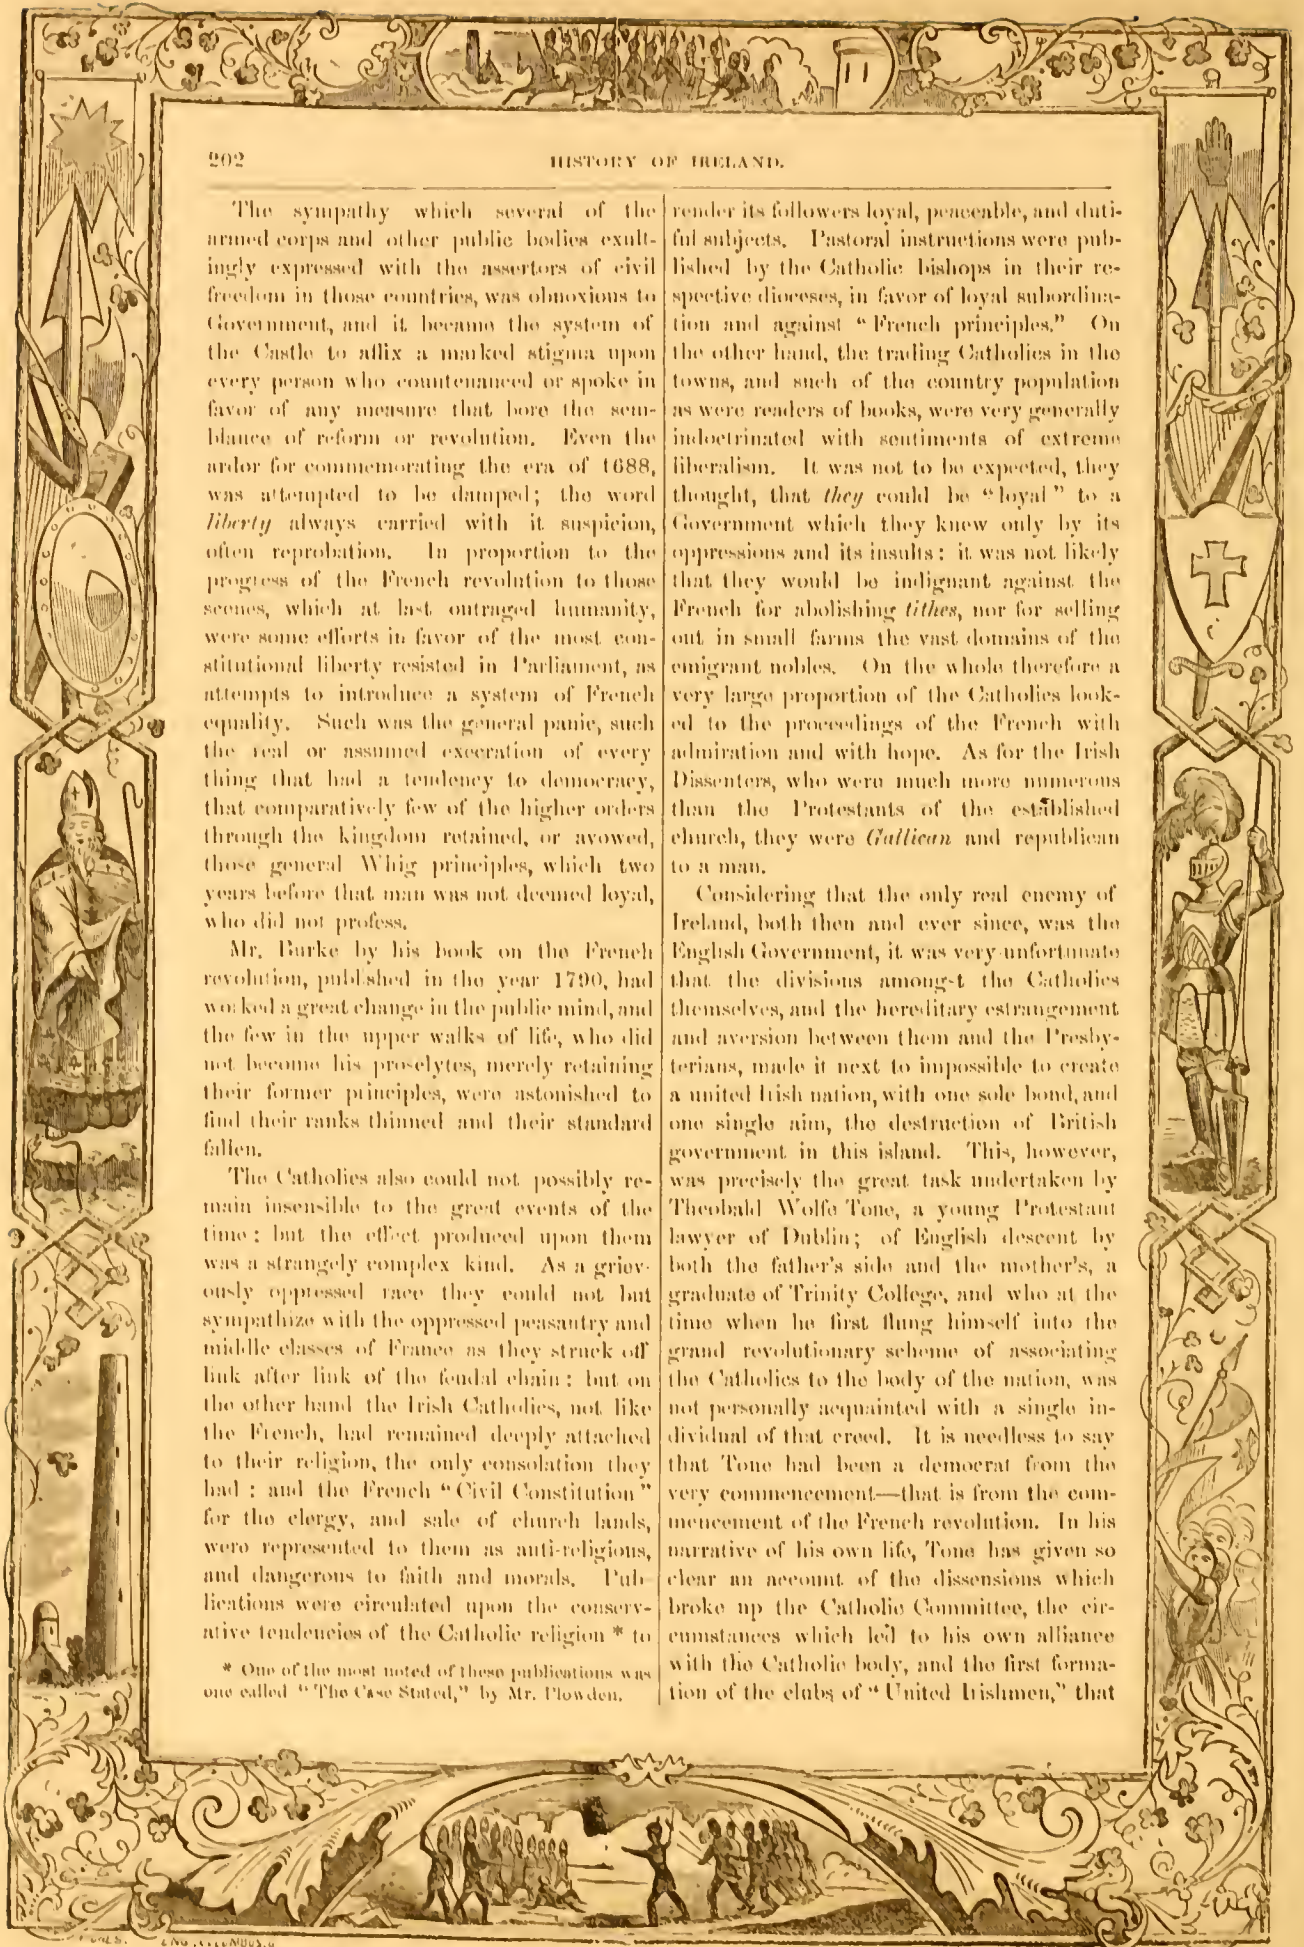 202
HISTORY OF IRELAND.
The sympathy which several of the
armed corps and other public bodies exult-
ingly expressed with the assertors of civil
freedom in those countries, was obnoxious to
Government, and it became the system of
the Castle to affix a marked stigma upon
every person who countenanced or spoke in
favor of any measure that bore the sem-
blance of reform or revolution. Even the
ardor for commemorating the era of 1688,
was attempted to be damped; the word
liberty always carried with it suspicion,
often reprobation. In proportion to the
progress of the French revolution to those
scenes, which at last outraged humanity,
were some efforts in favor of the most con-
stitutional liberty resisted in Parliament, as
attempts to introduce a system of French
equality. Such was the general panic, such
the real or assumed execration of every
thing that had a tendency to democracy,
that comparatively few of the higher orders
through the kingdom retained, or avowed,
those general Whig principles, which two
years before that man was not deemed loyal,
who did not profess.
Mr. Burke by his book on the French
revolution, published in the year 1790, had
worked a great change in the public mind, and
the few in the upper walks of life, who did
not become his proselytes, merely retaining
their former principles, were astonished to
find their ranks thinned and their standard
fallen.
The Catholics also could not possibly re-
main insensible to the great events of the
time: but the effect produced upon them
was a strangely complex kind. As a griev-
ously oppressed race they could not but
sympathize with the oppressed peasantry and
middle classes of France as they struck off
link after link of the feudal chain: but on
the other hand the Irish Catholics, not like
the French, had remained deeply attached
to their religion, the only consolation they
had: and the French "Civil Constitution"
for the clergy, and sale of church lands,
were represented to them as anti-religious,
and dangerous to faith and morals. Pub-
lications were circulated upon the conserv-
ative tendencies of the Catholic religion * to
* One of the most noted of these publications was
one called "The Case Stated," by Mr. Plowden.
render its followers loyal, peaceable, and duti-
ful subjects. Pastoral instructions were pub-
lished by the Catholic bishops in their re-
spective dioceses, in favor of loyal subordina-
tion and against "French principles." On
the other hand, the trading Catholics in the
towns, and such of the country population
as were readers of books, were very generally
indoctrinated with sentiments of extreme
liberalism. It was not to be expected, they
thought, that they could be "loyal" to a
Government which they knew only by its
oppressions and its insults: it was not likely
that they would be indignant against the
French for abolishing tithes, nor for selling
out in small farms the vast domains of the
emigrant nobles. On the whole therefore a
very large proportion of the Catholics look-
ed to the proceedings of the French with
admiration and with hope. As for the Irish
Dissenters, who were much more numerous
than the Protestants of the established
church, they were Gallican and republican
to a man.
Considering that the only real enemy of
Ireland, both then and ever since, was the
English Government, it was very unfortunate
that the divisions amongst the Catholics
themselves, and the hereditary estrangement
and aversion between them and the Presby-
terians, made it next to impossible to create
a united Irish nation, with one sole bond, and
one single aim, the destruction of British
government in this island. This, however,
was precisely the great task undertaken by
Theobald Wolfe Tone, a young Protestant
lawyer of Dublin; of English descent by
both the father's side and the mother's, a
graduate of Trinity College, and who at the
time when he first flung himself into the
grand revolutionary scheme of associating
the Catholics to the body of the nation, was
not personally acquainted with a single in-
dividual of that creed. It is needless to say
that Tone had been a democrat from the
very commencement—that is from the com-
mencement of the French revolution. In his
narrative of his own life, Tone has given so
clear an account of the dissensions which
broke up the Catholic Committee, the cir-
cumstances which led to his own alliance
with the Catholic body, and the first forma-
tion of the clubs of "United Irishmen," that
ENG. COLUMBUS.O